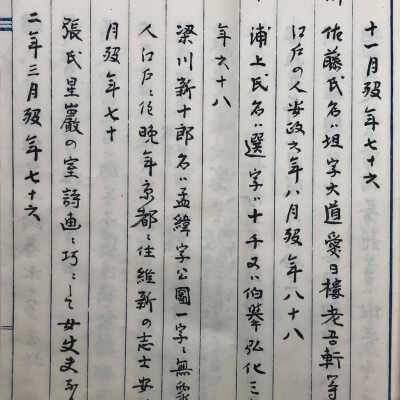 十一月歿年七十六
佐藤氏名ハ坦字大道愛日樓老吾軒等
江戸の人安政六年八月歿年八十八
浦上氏名ハ選字ハ十千又ハ伯擧弘化三
年六十八
梁川新十郎名ハ孟緯字公圖一字ニ無象
人江戸ニ住晩年京都ニ住維新の志士安
月歿年七十
張氏星巖の室詩画ニ巧ニして女丈夫
二年三月歿年七十六